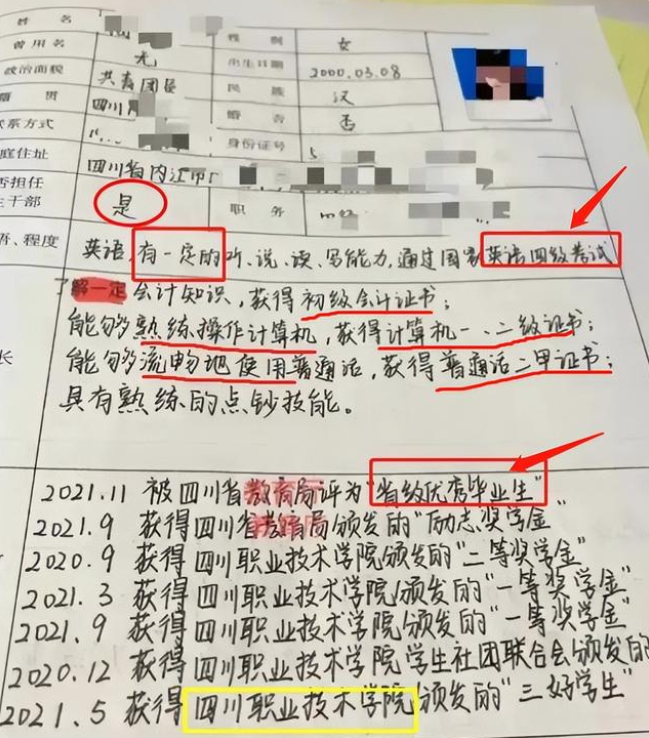 姓 名 性 别 女
曾用名 无 出生日期 2000.03.08
政治面貌 共青团员 民 族 汉
籍 贯 四川 婚 否 否
联系方式 身份证号 5
庭住址 四川省内江市
否担任
生干部 是 职 务
语、程度 英语,有一定的听、说、读、写能力,通过国家英语四级考试
了解一定会计知识,获得初级会计证书;
能够熟练操作计算机,获得计算机一、二级证书;
长 能够流畅地使用普通话,获得普通话二甲证书;
具有熟练的点钞技能。
2021.11 被四川省教育局评为"省级优秀毕业生"
2021.9 获得四川省教育局颁发的"励志奖学金"
2020.9 获得四川职业技术学院颁发的"二等奖学金"
2021.3 获得四川职业技术学院颁发的"一等奖学金"
2021.9 获得四川职业技术学院颁发的"一等奖学金"
2020.12 获得四川职业技术学院学生社团联合会颁发的
2021.5 获得四川职业技术学院颁发的"三好学生"